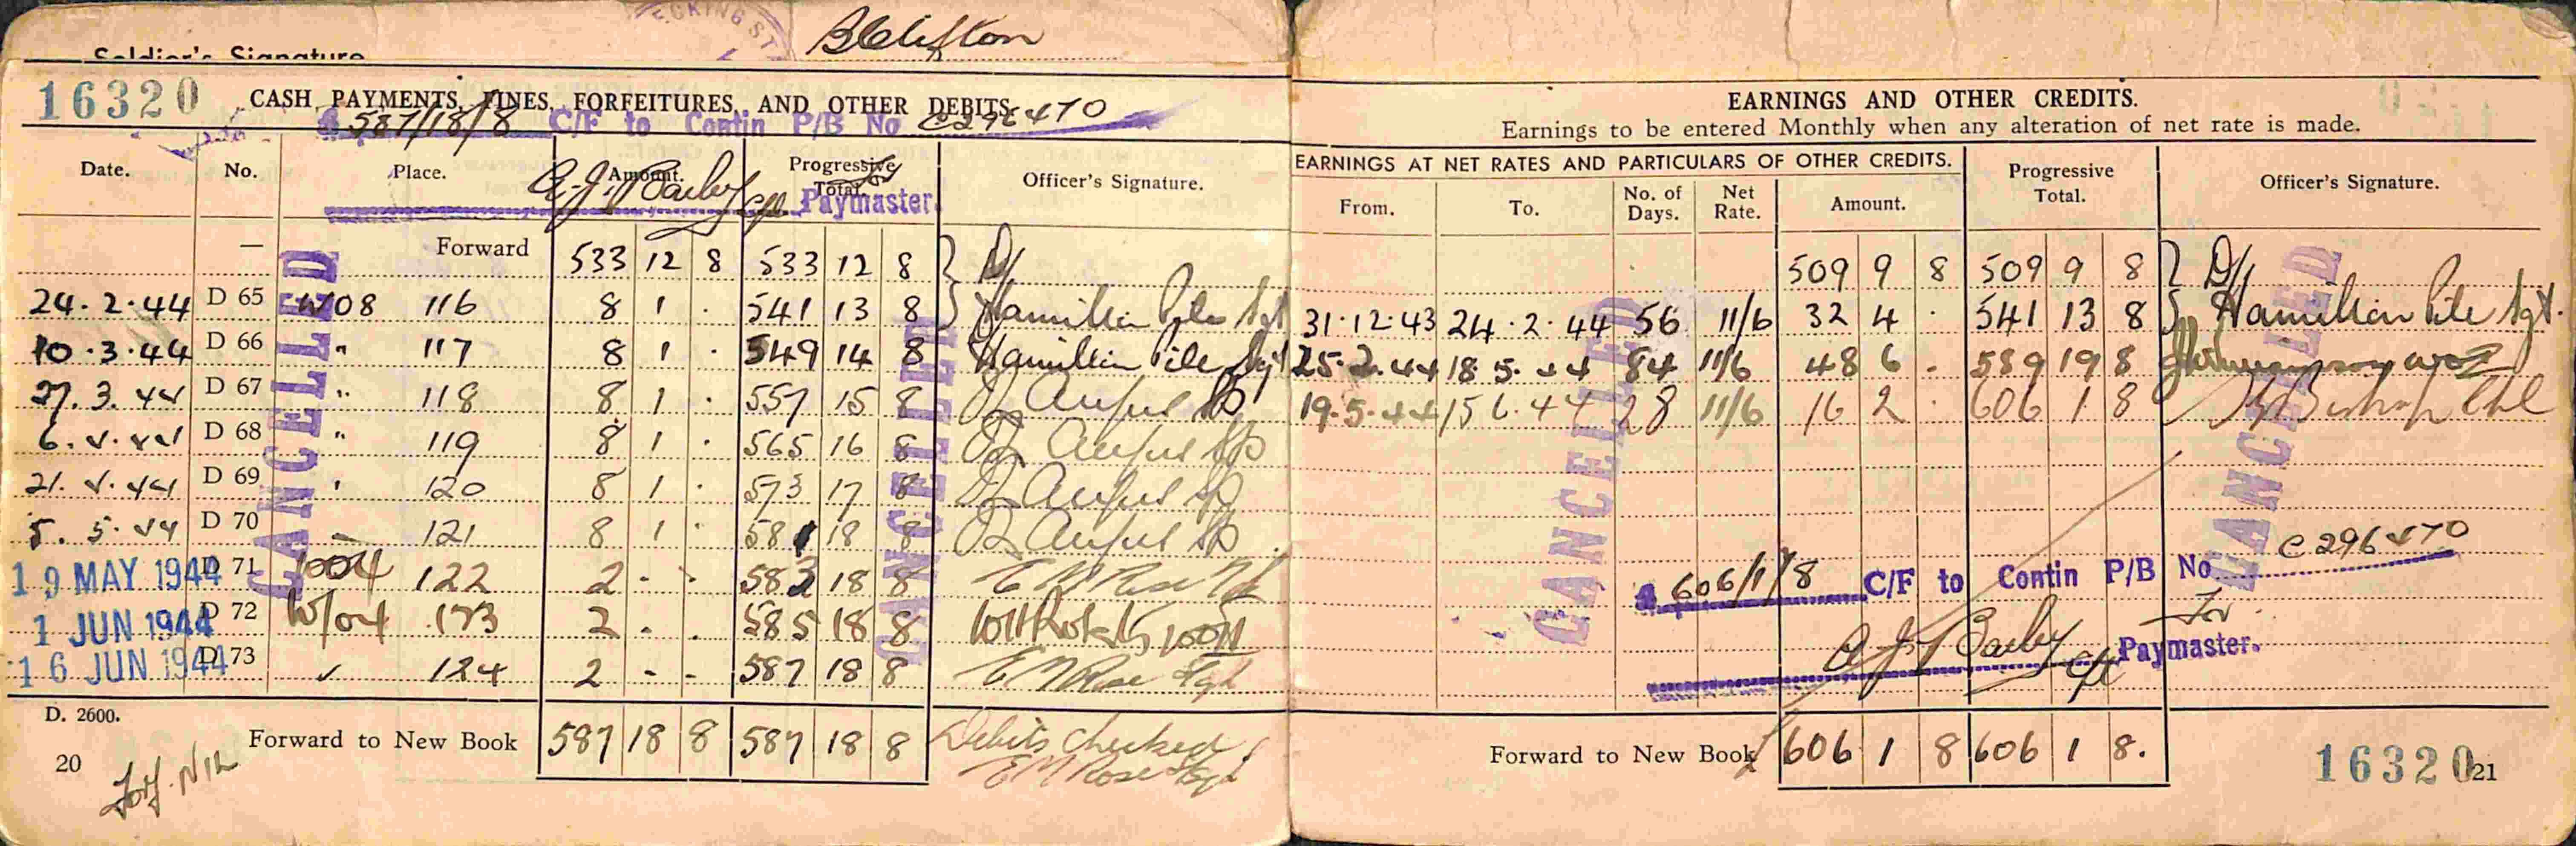 Soldier's Signature BClifton
16320 CASH PAYMENTS, FINES, FORFEITURES, AND OTHER DEBITS.
£ 587/18/8 C/F to Contin P/B No C296470
Date. No. Place. Amount. Progressive Total. Officer's Signature.
A.J. Barby Cpl for Paymaster.
— Forward 533 12 8 533 12 8
24.2.44 D 65 W08 116 8 1 . 541 13 8 Hamilton Pile Sgt
10.3.44 D 66 " 117 8 1 . 549 14 8 Hamilton Pile Sgt
27.3.44 D 67 " 118 8 1 . 557 15 8
6.4.44 D 68 " 119 8 1 . 565 16 8
21.4.44 D 69 " 120 8 1 . 573 17 8
5.5.44 D 70 " 121 8 1 . 581 18 8
19 MAY 1944 D 71 1004 122 2 - - 583 18 8 E M Rose
1 JUN 1944 D 72 W/04 123 2 - . 585 18 8
16 JUN 1944 D 73 " 124 2 - - 587 18 8 E M Rose Sgt
CANCELLED
CANCELLED
D. 2600.
Forward to New Book 587 18 8 587 18 8 Debits Checked
E M Rose Sgt
20
Forf. Nil
EARNINGS AND OTHER CREDITS.
Earnings to be entered Monthly when any alteration of net rate is made.
EARNINGS AT NET RATES AND PARTICULARS OF OTHER CREDITS.
From. To. No. of Days. Net Rate. Amount. Progressive Total. Officer's Signature.
509 9 8 509 9 8
31.12.43 24.2.44 56 11/6 32 4 . 541 13 8 Hamilton Pile Sgt.
25.2.44 18.5.44 84 11/6 48 6 . 589 19 8
19.5.44 15 6.44 28 11/6 16 2 . 606 1 8 Bishop
CANCELLED
CANCELLED
£ 606/1/8 C/F to Contin P/B No C296470
A.J. Barby Cpl for Paymaster.
Forward to New Book 606 1 8 606 1 8.
16320 21